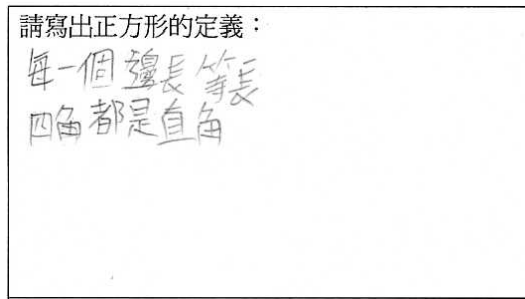 請寫出正方形的定義：
每一個邊長等長
四角都是直角